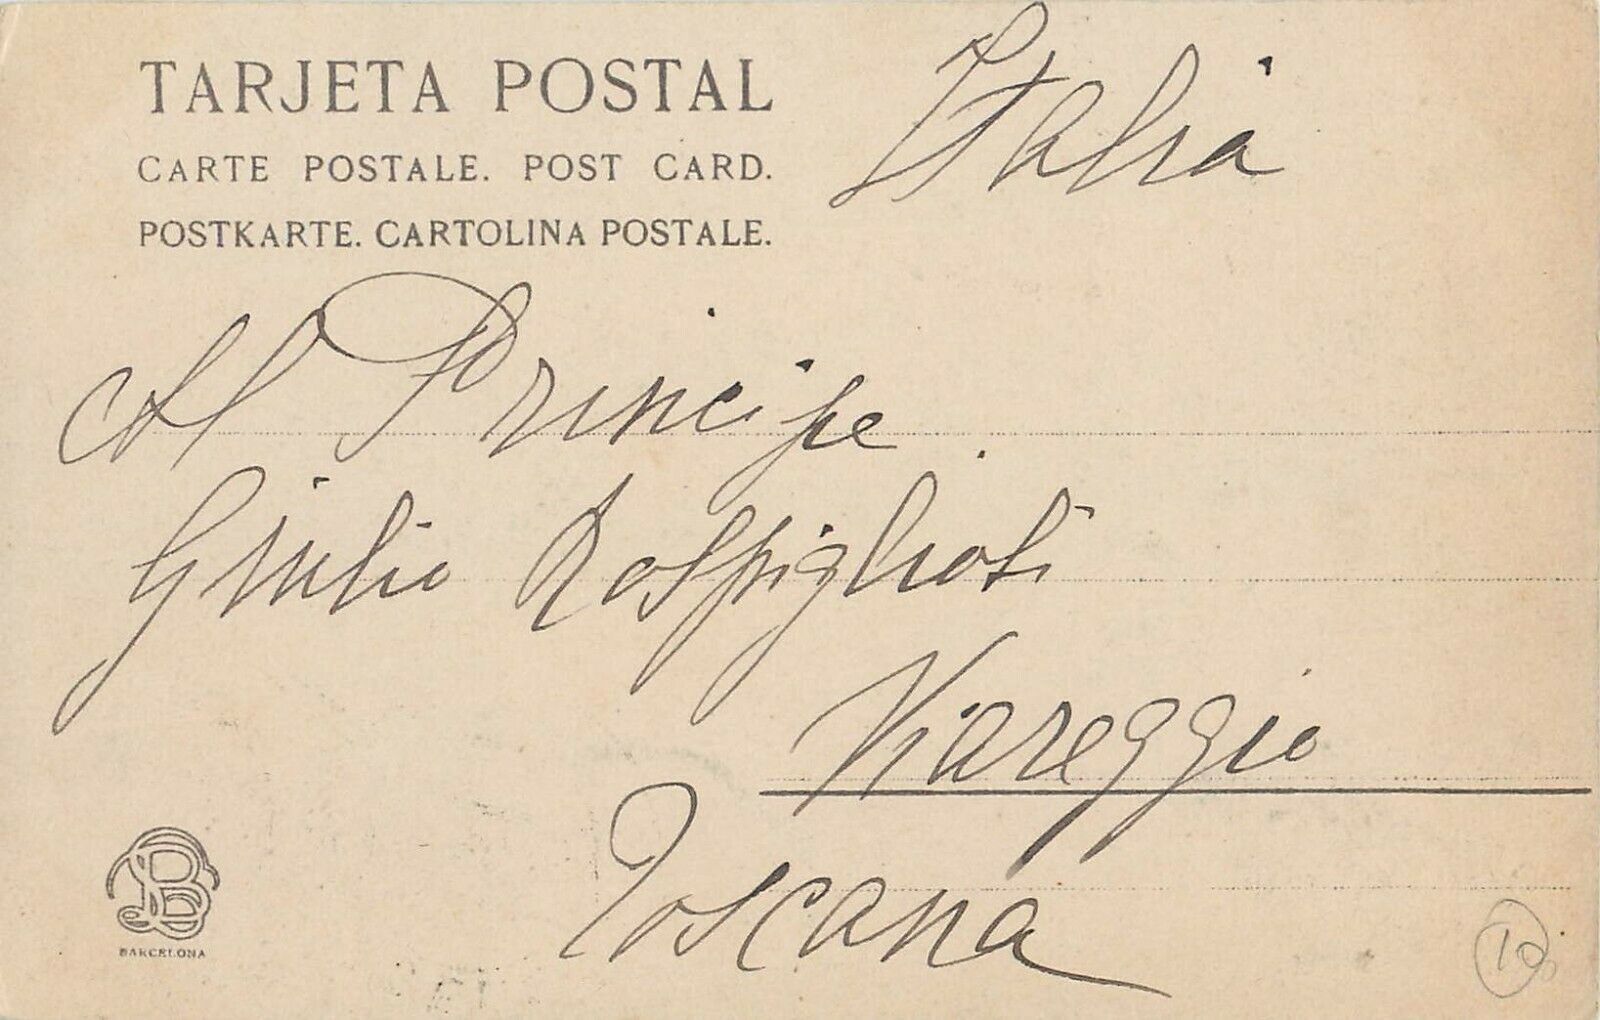 TARJETA POSTAL
CARTE POSTALE. POST CARD.
POSTKARTE. CARTOLINA POSTALE.
Italia
Al Principe
Giulio Rospigliosi
Viareggio
Toscana
LB
BARCELONA
10